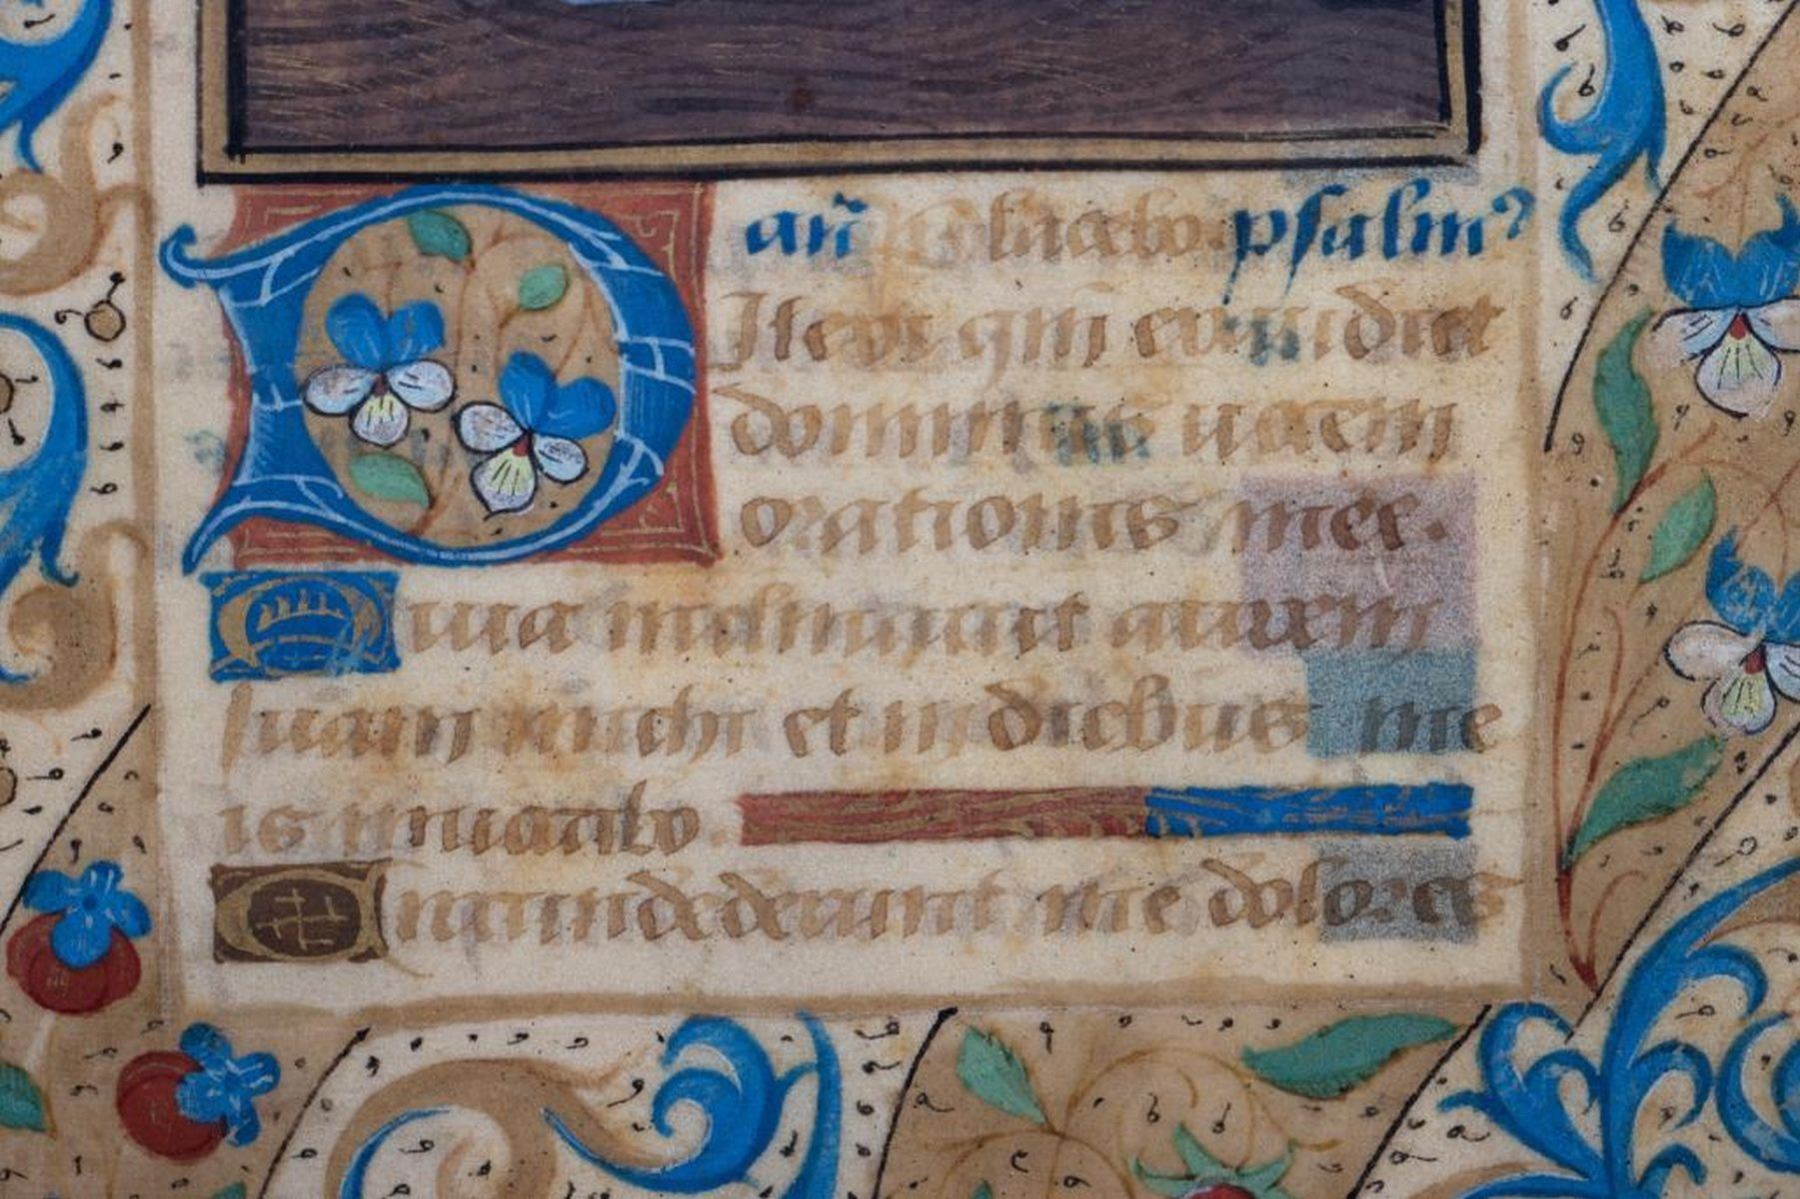 añ Placebo. psalm9
DIlexi qm̅ exaudiet
dominus uocem
orationis mee.
Quia inclinauit aurem
suam michi et in diebus me
is inuocabo.
Circundederunt me dolores